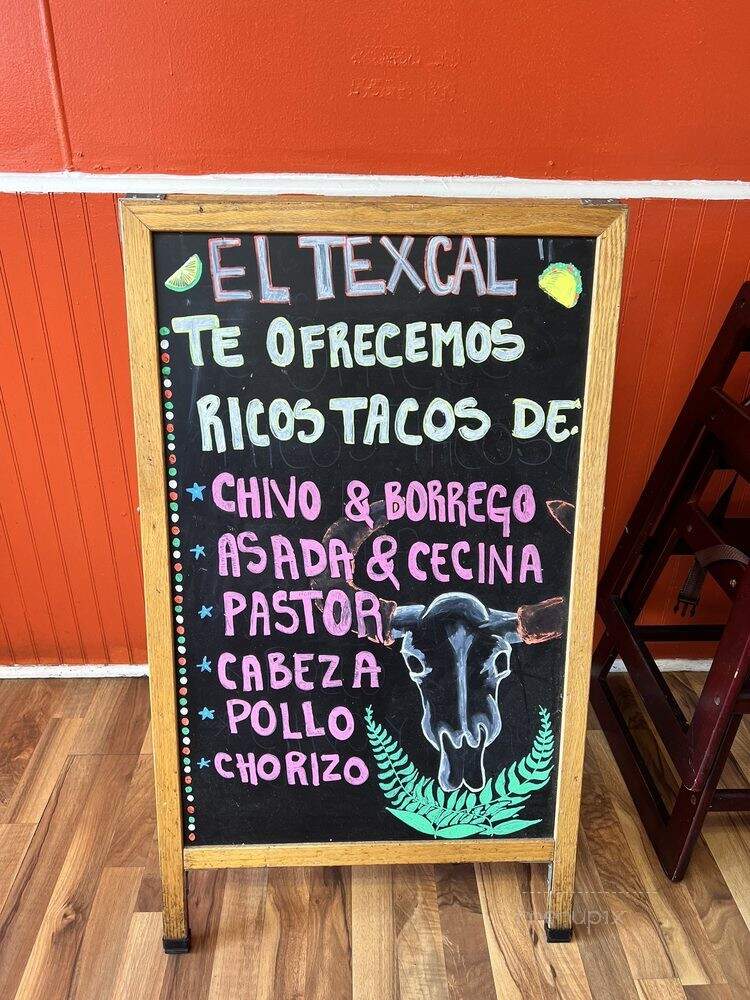 EL TEXCAL
TE OFRECEMOS
RICOS TACOS DE:
CHIVO & BORREGO
ASADA & CECINA
PASTOR
CABEZA
POLLO
CHORIZO
menupix